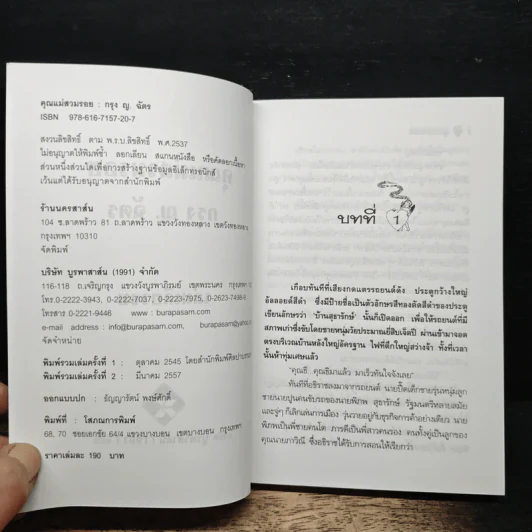 คุณแม่สวมรอย : กรุง ญ. ฉัตร
ISBN 978-616-7157-20-7
สงวนลิขสิทธิ์ ตาม พ.ร.บ.ลิขสิทธิ์ พ.ศ.2537
ไม่อนุญาตให้พิมพ์ซ้ำ ลอกเลียน สแกนหนังสือ หรือคัดลอกเนื้อหา
ส่วนหนึ่งส่วนใดเพื่อการสร้างฐานข้อมูลอิเล็กทรอนิกส์
เว้นแต่ได้รับอนุญาตจากสำนักพิมพ์
ร้านนครสาส์น
104 ซ.ลาดพร้าว 81 ถ.ลาดพร้าว แขวงวังทองหลาง เขตวังทองหลาง
กรุงเทพฯ 10310
จัดพิมพ์
บริษัท บูรพาสาส์น (1991) จำกัด
116-118 ถ.เจริญกรุง แขวงวังบูรพาภิรมย์ เขตพระนคร กรุงเทพฯ
โทร.0-2222-3943, 0-2222-7037, 0-2223-7975, 0-2623-7498-9
โทรสาร 0-2221-9446 www.burapasarn.com
e-mail address : info@burapasarn.com, burapasarn.com
จัดจำหน่าย
พิมพ์รวมเล่มครั้งที่ 1 : ตุลาคม 2545 โดยสำนักพิมพ์ศิลปาบรรณาคาร
พิมพ์รวมเล่มครั้งที่ 2 : มีนาคม 2557
ออกแบบปก : ธัญญารัตน์ พงษ์ศักดิ์
พิมพ์ที่ : โสภณการพิมพ์
68, 70 ซอยเอกชัย 64/4 แขวงบางบอน เขตบางบอน กรุงเทพฯ
ราคาเล่มละ 190 บาท
บทที่ 1
เกือบทันทีที่เสียงกดแตรรถยนต์ดัง ประตูกว้างใหญ่
อัลลอยด์สีดำ ซึ่งมีป้ายชื่อเป็นตัวอักษรสีทองติดสีดำของประตู
เขียนอักษรว่า 'บ้านสุธารักษ์' นั้นก็เปิดออก เพื่อให้รถยนต์ที่มี
สภาพเก่าซึ่งขับโดยชายหนุ่มวัยประมาณยี่สิบเจ็ดปี ผ่านเข้ามาจอด
ตรงบริเวณบ้านหลังใหญ่อัครฐาน ไฟที่ตึกใหญ่สว่างจ้า ทั้งที่เวลา
นั้นห้าทุ่มเศษแล้ว
"คุณธี คุณธีมาแล้ว มาเร็วทันใจจังเลย"
ทันทีที่อธิราชลงมาจากรถยนต์ นายเปี๊ยกชายรุ่นหนุ่มลูก
ชายนายปูนคนขับรถของนายพิภพ สุธารักษ์ รัฐมนตรีหลายสมัย
และจู่ๆ ก็เลิกเล่นการเมือง วุ่นวายอยู่กับธุรกิจการค้าอย่างเดียว นาย
พิภพเป็นพี่ชายคนโต ภารดีเป็นพี่สาวคนรอง คนทั้งคู่เป็นลูกของ
คุณนายภาวิณี ซึ่งอธิราชได้รับการสอนให้เรียกว่า